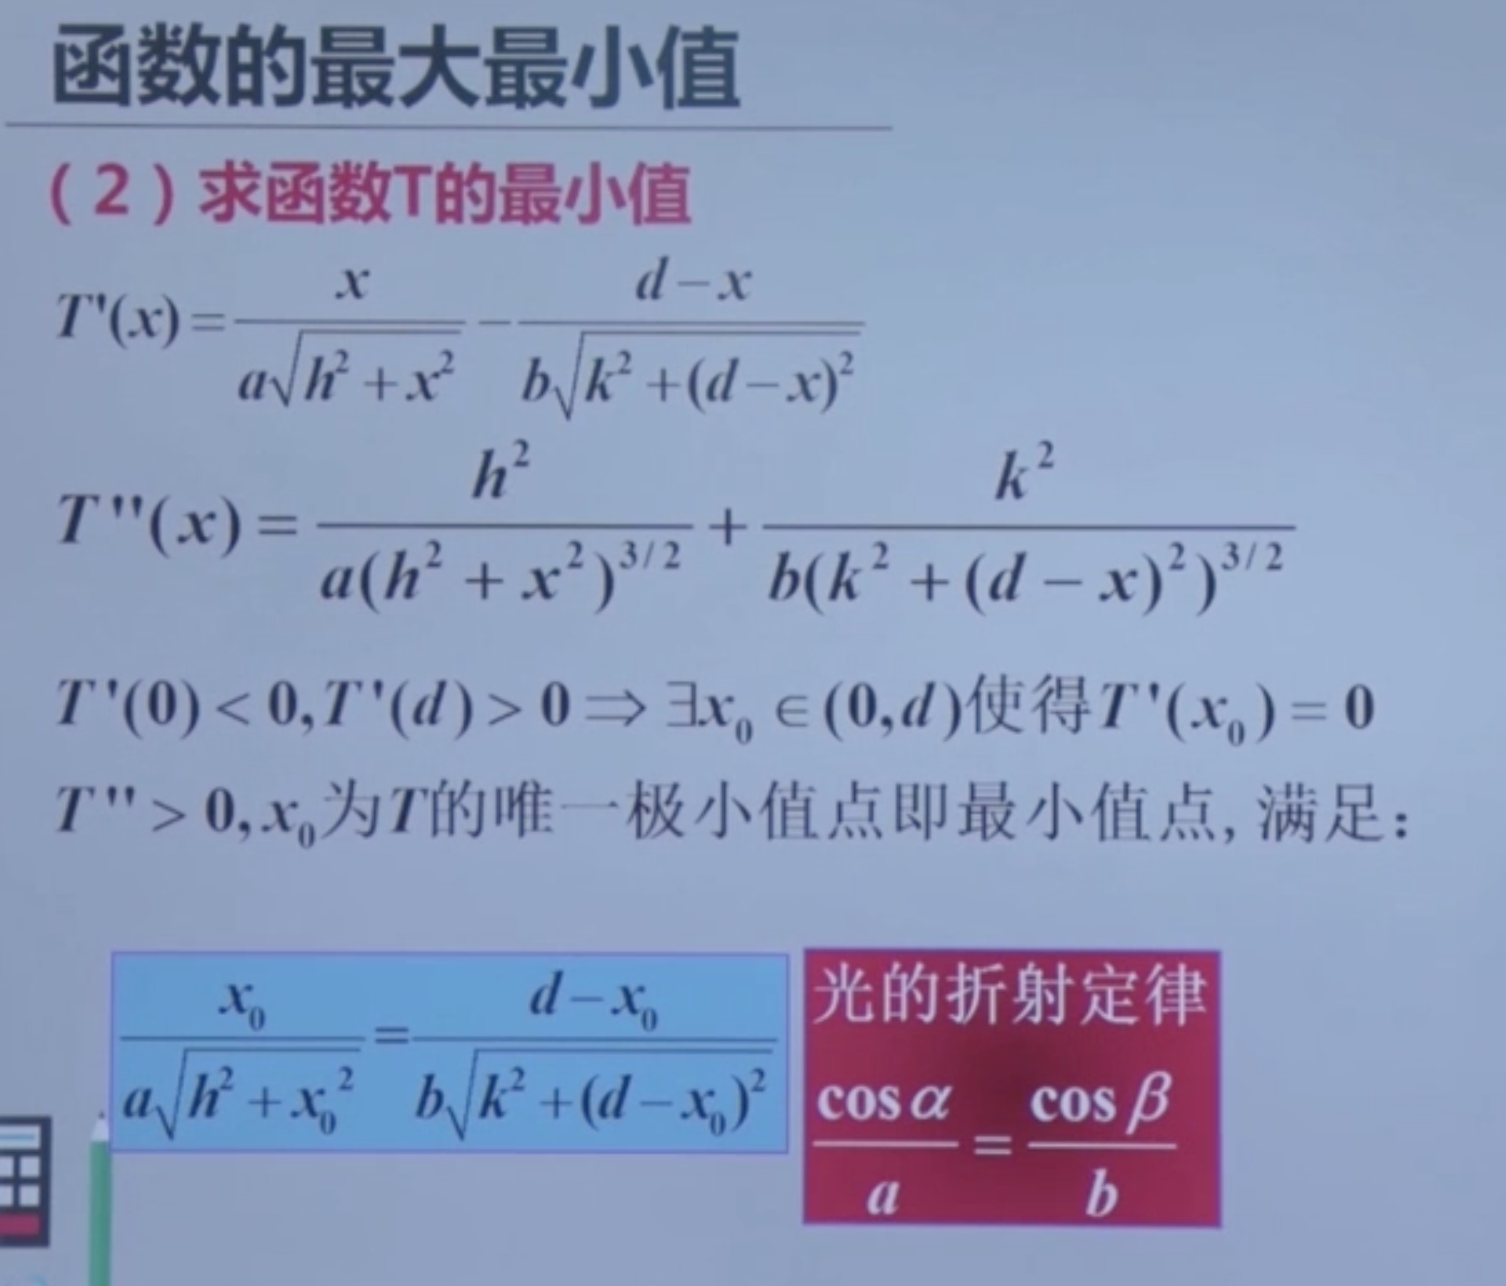 函数的最大最小值
（2）求函数T的最小值
T'(x)=\frac{x}{a\sqrt{h^2+x^2}}-\frac{d-x}{b\sqrt{k^2+(d-x)^2}}
T''(x)=\frac{h^2}{a(h^2+x^2)^{3/2}}+\frac{k^2}{b(k^2+(d-x)^2)^{3/2}}
T'(0)<0,T'(d)>0⇒∃x_0∈(0,d)使得T'(x_0)=0
T''>0,x_0为T的唯一极小值点即最小值点,满足：
\frac{x_0}{a\sqrt{h^2+x_0^2}}=\frac{d-x_0}{b\sqrt{k^2+(d-x_0)^2}}
光的折射定律
\frac{cosα}{a}=\frac{cosβ}{b}